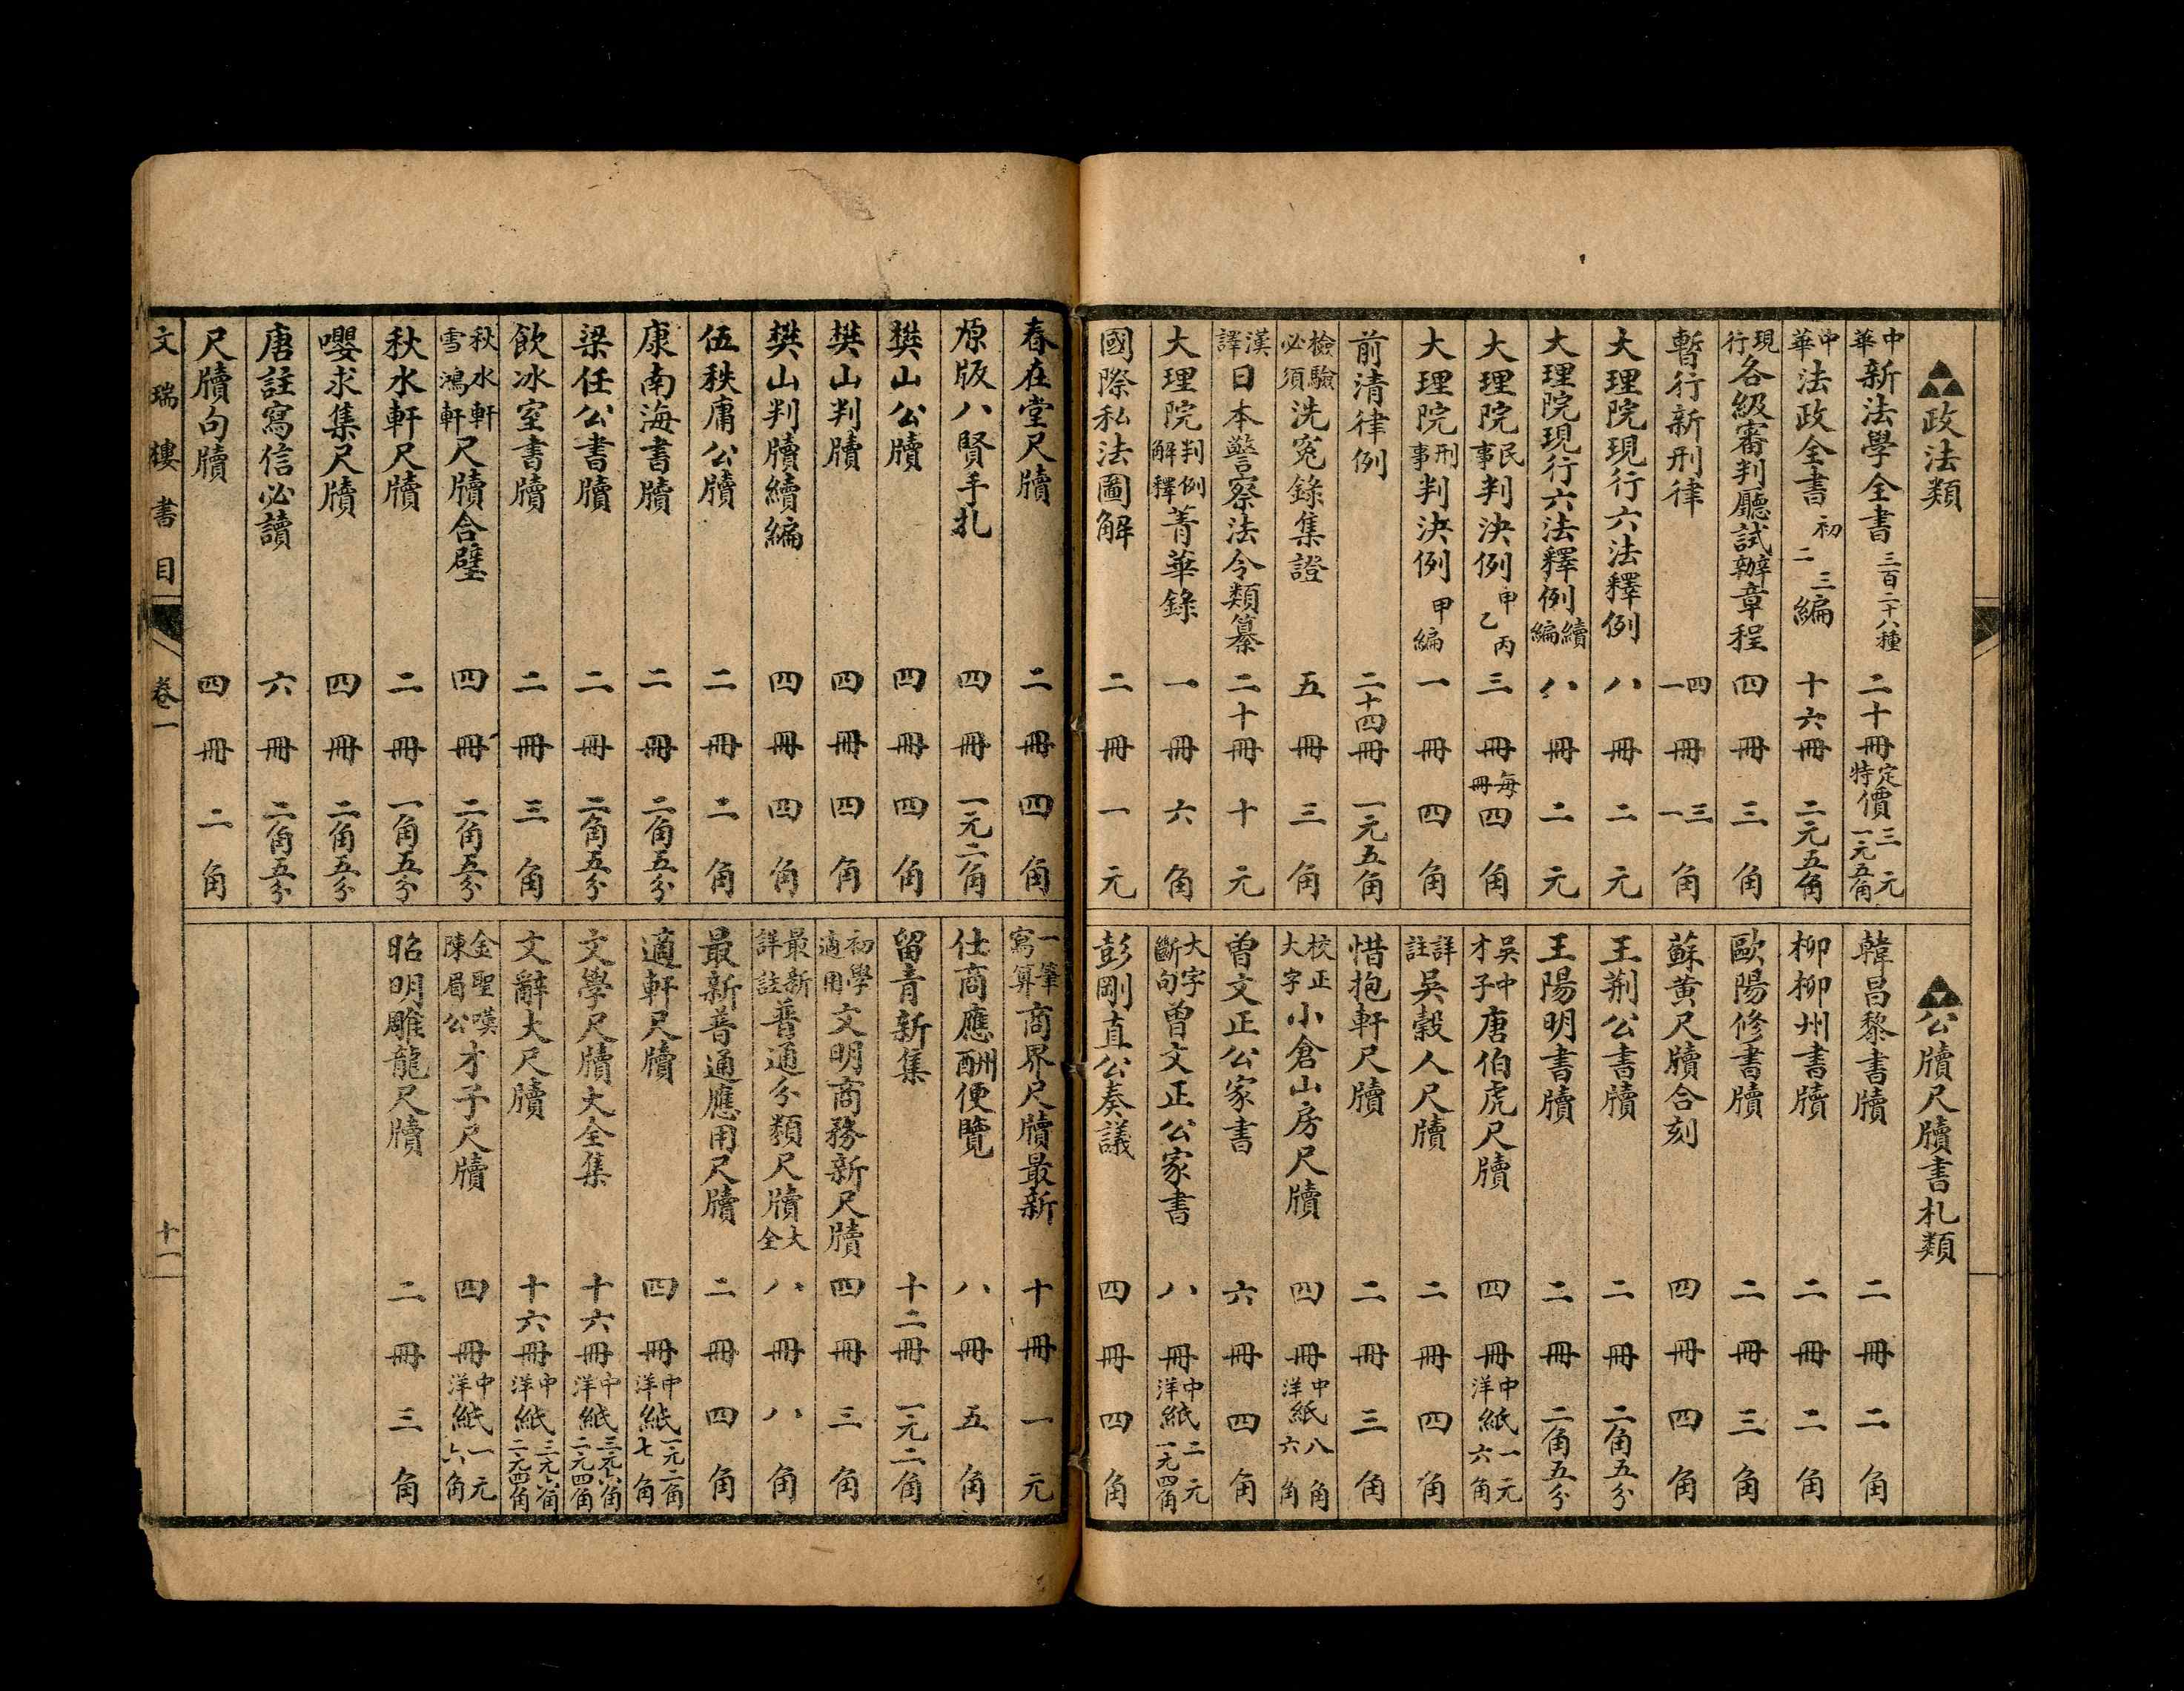 政法類
中華新法學全書三百二十八種 二十冊 定特價三元一元五角
中華法政全書初二三編 十六冊 二元五角
現行各級審判廳試辦章程 四冊 三角
暫行新刑律 四一冊 三一角
大理院現行六法釋例 八冊 二元
大理院現行六法釋例續編 八冊 二元
大理院民事判決例甲乙丙 三冊 每冊四角
大理院刑事判決例甲編 一冊 四角
前清律例 二十四冊 一元五角
檢驗必須洗冤錄集證 五冊 三角
漢譯日本警察法令類纂 二十冊 十元
大理院判例解釋菁華錄 一冊 六角
國際私法圖解 二冊 一元
公牘尺牘書札類
韓昌黎書牘 二冊 二角
柳柳州書牘 二冊 二角
歐陽修書牘 二冊 三角
蘇黃尺牘合刻 四冊 四角
王荆公書牘 二冊 二角五分
王陽明書牘 二冊 二角五分
吳中才子唐伯虎尺牘 四冊 中洋紙一元六角
詳註吳穀人尺牘 二冊 四角
惜抱軒尺牘 二冊 三角
校正大字小倉山房尺牘 四冊 中洋紙八角六角
曾文正公家書 六冊 四角
大字斷句曾文正公家書 八冊 中洋紙二元一元四角
彭剛直公奏議 四冊 四角
春在堂尺牘 二冊 四角
原版八賢手扎 四冊 一元二角
樊山公牘 四冊 四角
樊山判牘 四冊 四角
樊山判牘續編 四冊 四角
伍秩庸公牘 二冊 二角
康南海書牘 二冊 二角五分
梁任公書牘 二冊 二角五分
飲冰室書牘 二冊 三角
秋水軒雪鴻軒尺牘合璧 四冊 二角五分
秋水軒尺牘 二冊 一角五分
嚶求集尺牘 四冊 二角五分
唐註寫信必讀 六冊 二角五分
尺牘句牘 四冊 二角
一筆寫算商界尺牘最新 十冊 一元
仕商應酬便覽 八冊 五角
留青新集 十二冊 一元二角
初學適用文明商務新尺牘 四冊 三角
最新詳註普通分類尺牘大全 八冊 八角
最新普通應用尺牘 二冊 四角
適軒尺牘 四冊 中洋紙一元二角七角
文學尺牘大全集 十六冊 中洋紙三元六角二元四角
文辭大尺牘 十六冊 中洋紙三元六角二元四角
金聖嘆陳眉公才子尺牘 四冊 中洋紙一元六角
昭明雕龍尺牘 二冊 三角
文瑞樓書目 卷一 十一